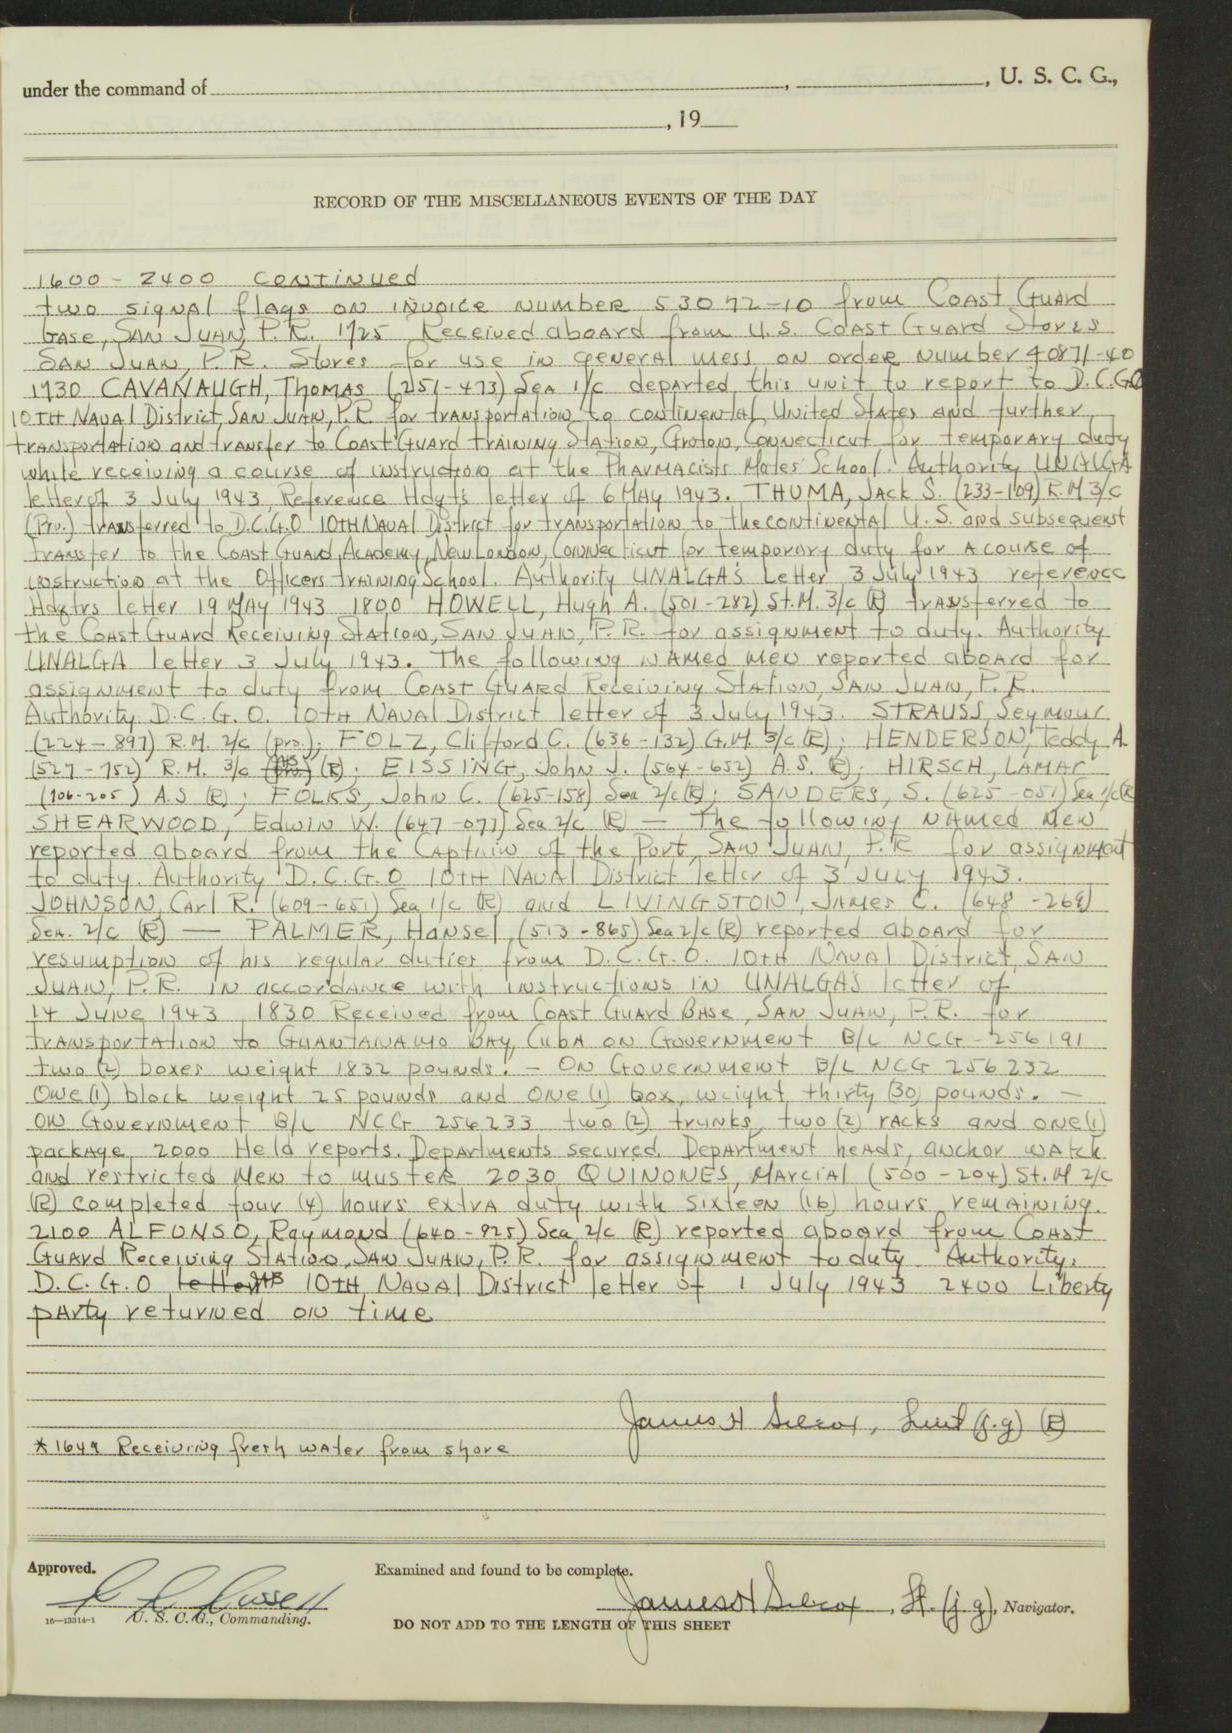 under the command of , , U. S. C. G.,
, 19
RECORD OF THE MISCELLANEOUS EVENTS OF THE DAY
1600 - 2400 Continued
two signal flags on invoice number 53072-10 from Coast Guard
Base, San Juan, P.R. 1725 Received aboard from U.S. Coast Guard Stores
San Juan, P.R. Stores for use in general mess, on order number 40871-40
1730 CAVANAUGH, Thomas (251-473) Sea 1/c departed this unit to report to D.C.G.O
10TH Naval District, San Juan, P.R. for transportation to continental United States and further
transportation and transfer to Coast Guard Training Station, Groton, Connecticut for temporary duty
while receiving a course of instruction at the Pharmacists Mates School. Authority UNALGA
letter of 3 July 1943, Reference Hdqts letter of 6 May 1943. THUMA, Jack S. (233-109) R.M 3/c
(Prv.) transferred to D.C.G.O 10TH Naval District for transportation to the continental U.S. and subsequent
transfer to the Coast Guard Academy, New London, Connecticut for temporary duty for a course of
instruction at the Officers training School. Authority UNALGA's Letter 3 July 1943 reference
Hdqtrs letter 19 May 1943 1800 HOWELL, Hugh A. (501-282) St.M. 3/c (R) transferred to
the Coast Guard Receiving Station, San Juan, P.R. for assignment to duty. Authority
UNALGA letter 3 July 1943. The following named men reported aboard for
assignment to duty from Coast Guard Receiving Station, San Juan, P.R.
Authority D.C.G.O. 10TH Naval District letter of 3 July 1943. STRAUSS, Seymour
(224-897) R.M. 2/c (prv.); FOLZ, Clifford C. (636-132) G.M. 3/c (R); HENDERSON, Teddy A.
(527-752) R.M. 3/c (R); EISSING, John J. (564-652) A.S. (R); HIRSCH, LAMAR
(706-205) A.S (R); FOLKS, John C. (625-158) Sea 2/c (R); SANDERS, S. (625-051) Sea 1/c (R
SHEARWOOD, Edwin W. (647-077) Sea 2/c (R) — The following named men
reported aboard from the Captain of the Port, San Juan, P.R for assignment
to duty. Authority D.C.G.O 10TH Naval District letter of 3 July 1943.
JOHNSON, Carl R. (609-651) Sea 1/c (R) and LIVINGSTON, James C. (648-269)
Sea. 2/c (R) — PALMER, Hansel (513-865) Sea 2/c (R) reported aboard for
resumption of his regular duties from D.C.G.O. 10TH Naval District, San
Juan, P.R. in accordance with instructions in UNALGA'S letter of
14 June 1943 1830 Received from Coast Guard Base, San Juan, P.R. for
transportation to Guantanamo Bay, Cuba on Government B/L NCG-256191
two (2) boxes weight 1832 pounds. - On Government B/L NCG 256232
One (1) block weight 25 pounds and one (1) box, weight thirty (30) pounds. —
on Government B/L NCG 256233 two (2) trunks, two (2) racks and one (1)
package, 2000 Held reports. Departments secured. Department heads, anchor watch
and restricted men to muster 2030 QUINONES, Marcial (500-204) St.M 2/c
(R) completed four (4) hours extra duty with sixteen (16) hours remaining.
2100 ALFONSO, Raymond (640-925) Sea 2/c (R) reported aboard from Coast
Guard Receiving Station, San Juan, P.R. for assignment to duty Authority:
D.C.G.O letter 10TH Naval District letter of 1 July 1943 2400 Liberty
party returned on time
James H Silcox, Lieut (j.g) (R)
* 1649 Receiving fresh water from shore
Approved. Examined and found to be complete.
James H Silcox, Lt. (j.g), Navigator.
16—13314-1 U. S. C. G., Commanding.
DO NOT ADD TO THE LENGTH OF THIS SHEET